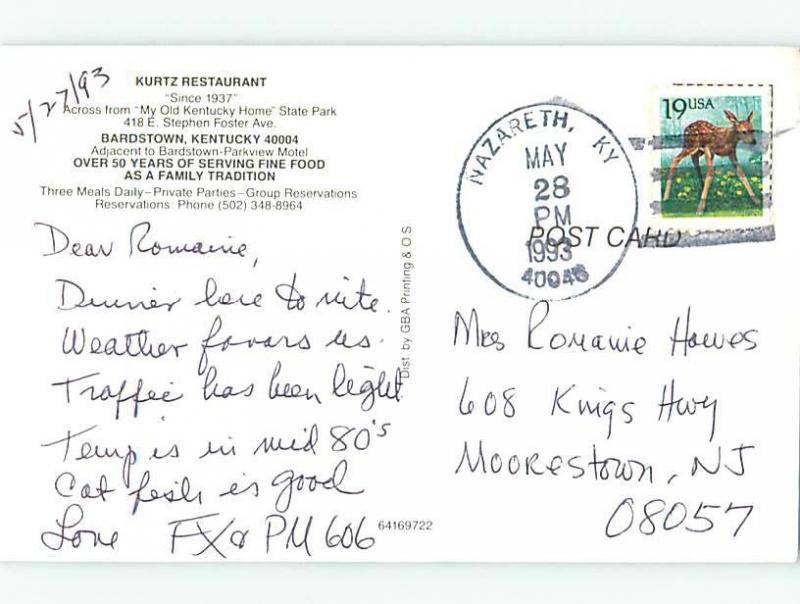 5/27/93
KURTZ RESTAURANT
"Since 1937"
Across from "My Old Kentucky Home" State Park
418 E. Stephen Foster Ave.
BARDSTOWN, KENTUCKY 40004
Adjacent to Bardstown-Parkview Motel
OVER 50 YEARS OF SERVING FINE FOOD
AS A FAMILY TRADITION
Three Meals Daily–Private Parties–Group Reservations
Reservations: Phone (502) 348-8964
Dear Romaine,
Dinner here to nite.
Weather favors us.
Traffic has been light
Temp is in mid 80's
Cat fish is good
Love FX & PM 606
64169722
Dist. by GBA Printing & O S
NAZARETH, KY
MAY
28
PM
1993
40046
19 USA
POST CARD
Mrs Romanie Hawes
608 Kings Hwy
Moorestown, NJ
08057